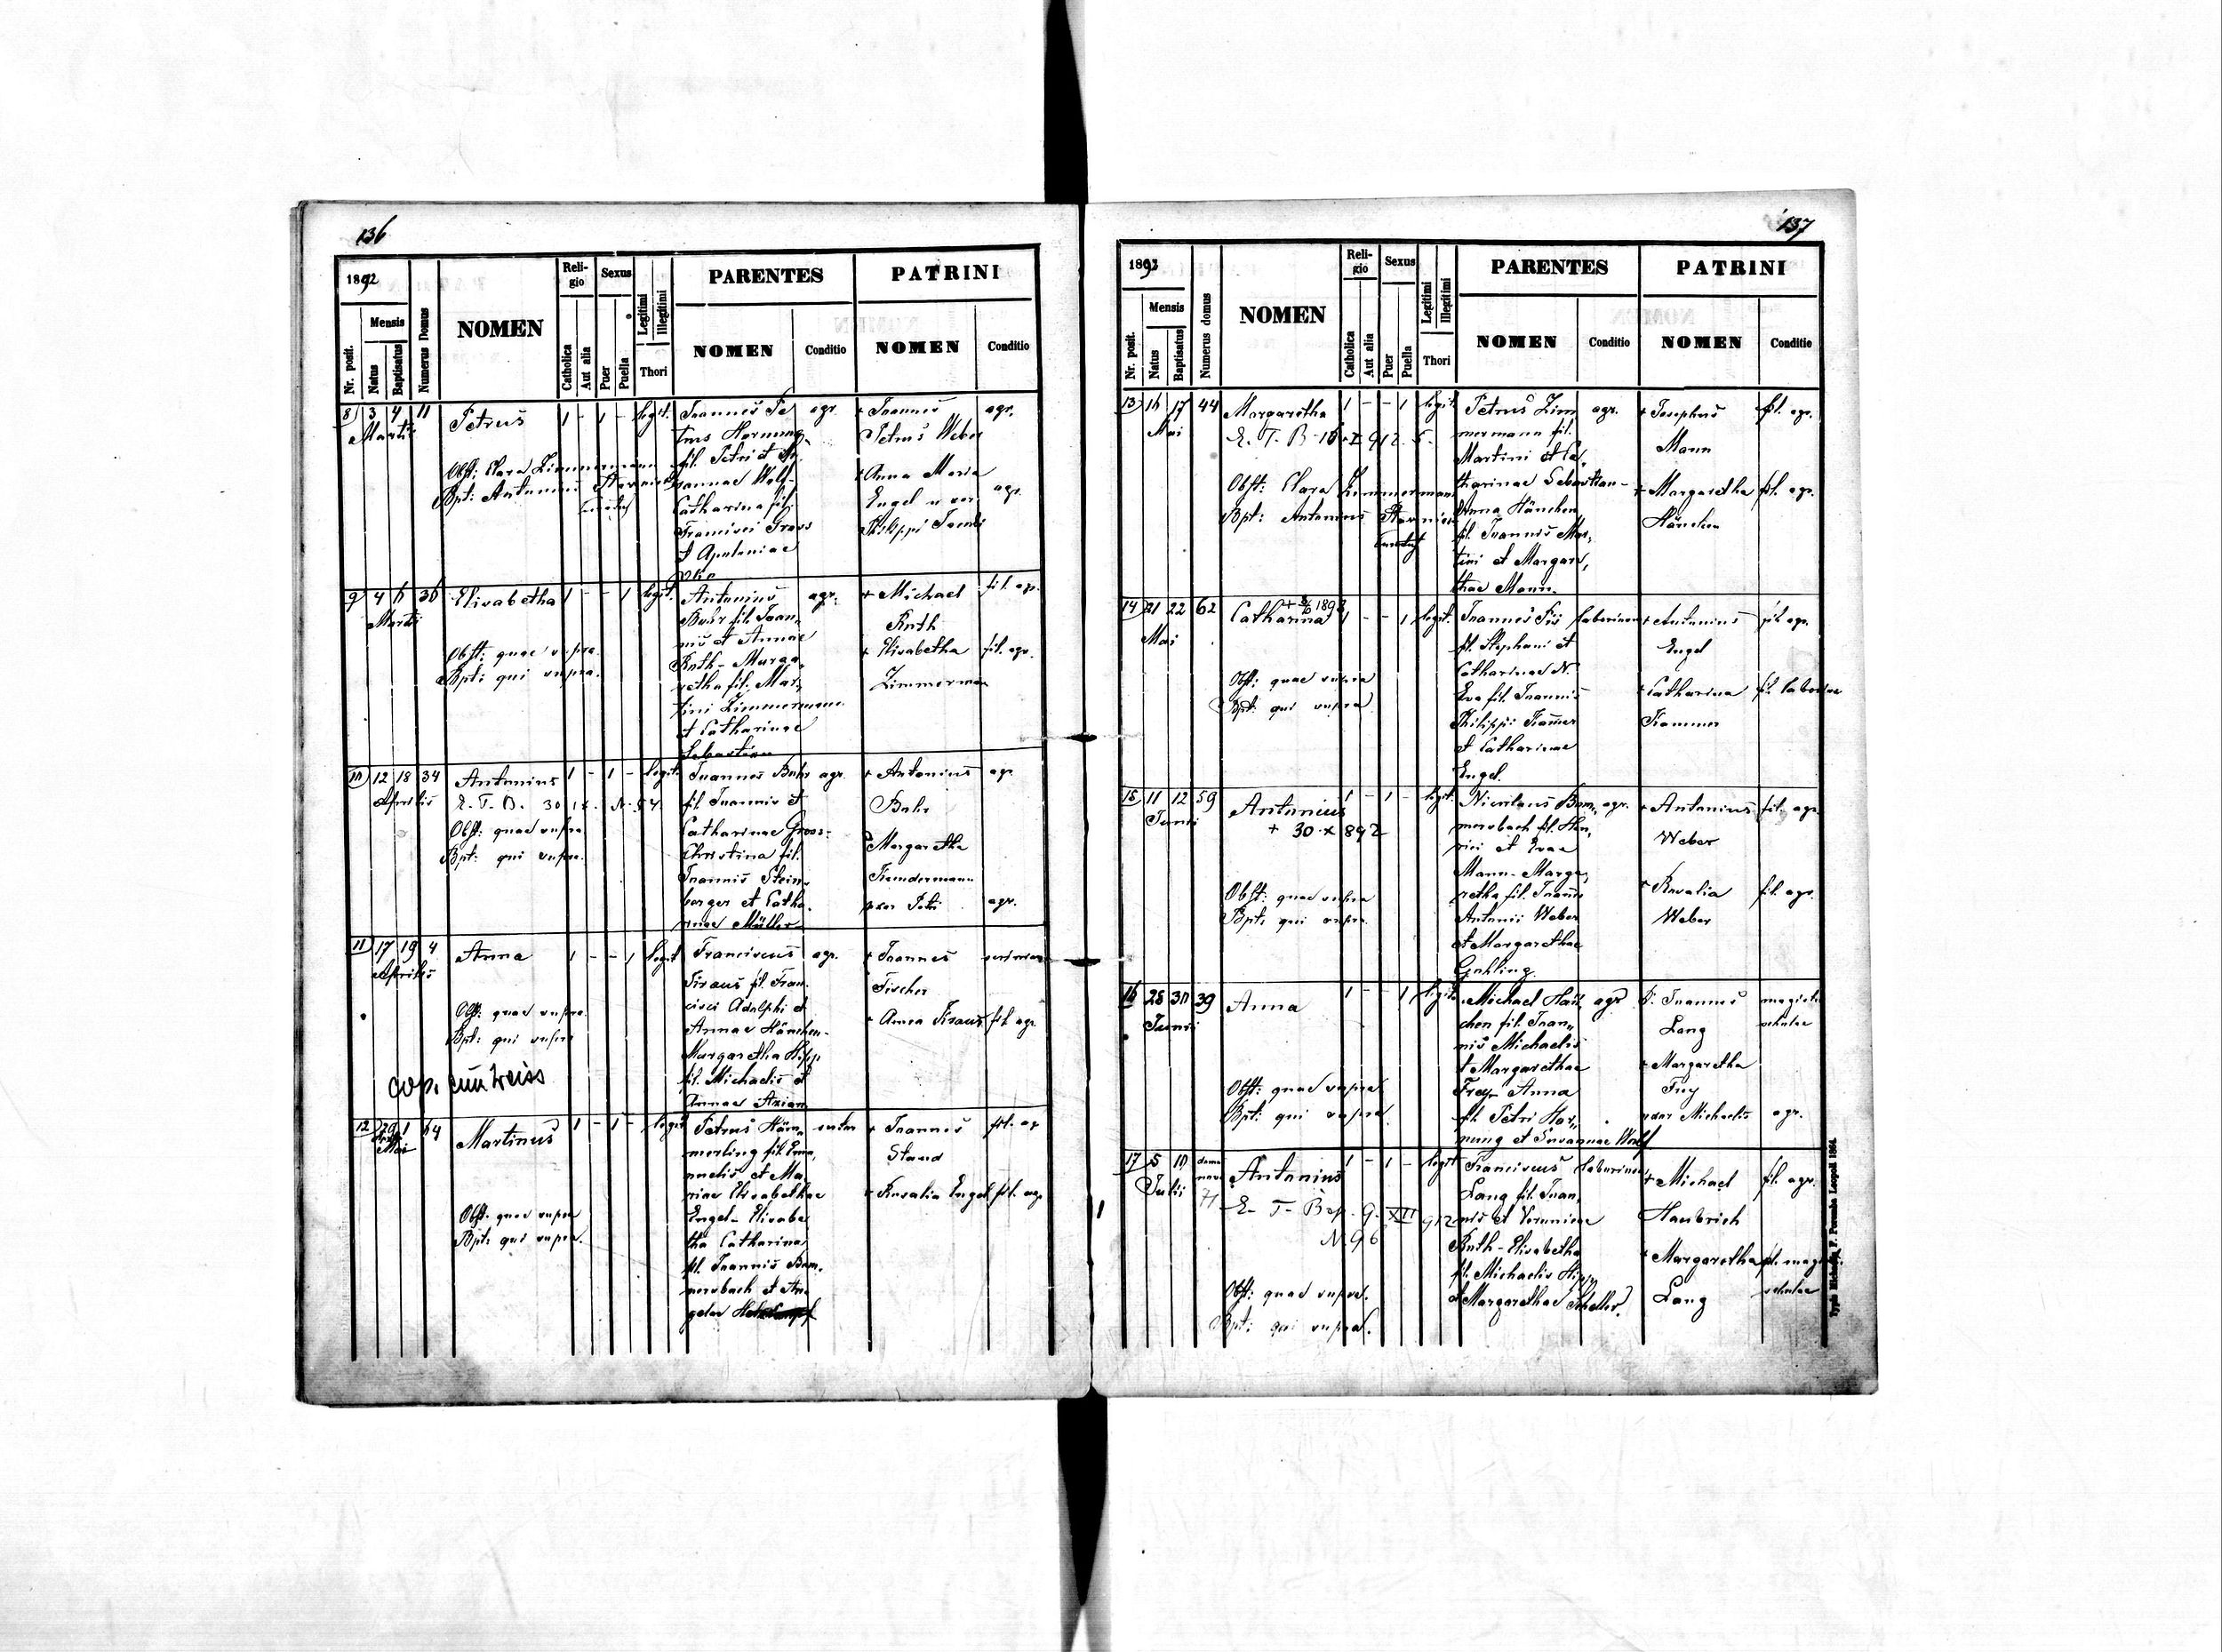 136
1892
Nr. posit.
Mensis
Natus
Baptisatus
Numerus Domus
NOMEN
Religio
Catholica
Aut alia
Sexus
Puer
Puella
Legitimi
Illegitimi
Thori
PARENTES
NOMEN
Conditio
PATRINI
NOMEN
Conditio
8 3 4 11 Petrus 1 - 1 - legit.
Martii
Obst: Clara Zimmermann
Bpt: Antonius
Joannes Pe
trus Hornung
fil. Petri et
Catharina fil.
Francisci Gross
et Apoloniae
agr.
+ Joannes
Petrus Weber
+ Anna Maria
Engel
Philippi
agr.
agr.
9 4 6 36 Elisabetha 1 - - 1 legit.
Martii
Obst: quae supra.
Bpt: qui supra.
Antonius
Buhr fil. Joan,
nis et Annae
Roth - Marga,
retha fil. Mar,
tini Zimmermann
et Catharinae
Sebastian
agr.
+ Michael
Roth
+ Elisabetha
Zimmerman
fil. agr.
fil. agr.
10 12 18 34 Antonius 1 - 1 - legit.
Aprilis
Obst: quae supra
Bpt: qui supra.
Joannes Buhr
fil. Joannis et
Catharinae Gross -
Christina fil.
Joannis Stein,
berger et Catha,
rinae Müller
agr.
+ Antonius
Buhr
Margaretha
uxor Petri
agr.
agr.
11 17 19 4 Anna 1 - - 1 legit
Aprilis
Obst: quae supra.
Bpt: qui supra
cop. cum Weiss
Franciscus
Kraus fil. Fran,
cisci Adolphi et
Annae Hänchen -
Margaretha Hipp
fil. Michaelis et
Annae
agr.
+ Joannes
Fischer
+ Anna Kraus
fil. agr.
12 29 1 64 Martinus 1 - 1 - legit
Mai
Obst: quae supra
Bpt: qui supra.
Petrus Häm,
merling fil. Ema,
nuelis et Ma,
riae Elisabethae
Engel - Elisabe
tha Catharina
fil. Joannis Bom,
mersbach et An,
gelae
sutor
+ Joannes
Staud
+ Rosalia Engel
fil. agr
fil. agr
137
1892
Nr. posit.
Mensis
Natus
Baptisatus
Numerus domus
NOMEN
Religio
Catholica
Aut alia
Sexus
Puer
Puella
Legitimi
Illegitimi
Thori
PARENTES
NOMEN
Conditio
PATRINI
NOMEN
Conditio
13 16 17 44 Margaretha 1 - - 1 legit
Mai
Obst: Clara Zimmermann
Bpt: Antonius
Petrus Zim
mermann fil.
Martini et Ca,
tharinae Sebastian -
Anna Hänchen
fil. Joannis Mar,
tini et Margare,
thae Mann.
agr.
+ Josephus
Mann
+ Margaretha
Hänchen
fil. agr.
fil. agr.
14 21 22 62 Catharina 1 - - 1 legit.
Mai
Obst: quae supra
Bpt: qui supra
Joannes
fil. Stephani et
Catharinae N.
Eva fil. Joannis
Philippi
et Catharinae
Engel.
+ Antonius
Engel
+ Catharina
fil agr.
15 11 12 59 Antonius 1 - 1 - legit.
Junii
+ 30 X 892
Obst: quae supra
Bpt: qui supra.
Nicolaus Bom,
mersbach fil. Hen,
rici et Evae
Mann - Marga,
retha fil. Joannis
Antonii Weber
et Margarethae
Gehling
agr.
+ Antonius
Weber
+ Rosalia
Weber
fil. agr.
fil. agr.
16 28 30 39 Anna 1 - - 1 legit.
Junii
Obst: quae supra
Bpt: qui supra
Michael Hän,
chen fil. Joan,
nis Michaelis
et Margarethae
Frey - Anna
fil. Petri Hor,
nung et Susannae Wolf
agr
Joannes
Lang
+ Margaretha
Frey
uxor Michaelis
scholae
agr.
17 5 10 71 Antonius 1 - 1 - legit
Julii
N. 96
Obst: quae supra.
Bpt: qui supra.
Franciscus
Lang fil. Joan,
nis et Veronicae
Roth - Elisabetha
fil. Michaelis Hipp
et Margarethae
+ Michael
Haubrich
+ Margaretha
Lang
fil. agr.
scholae